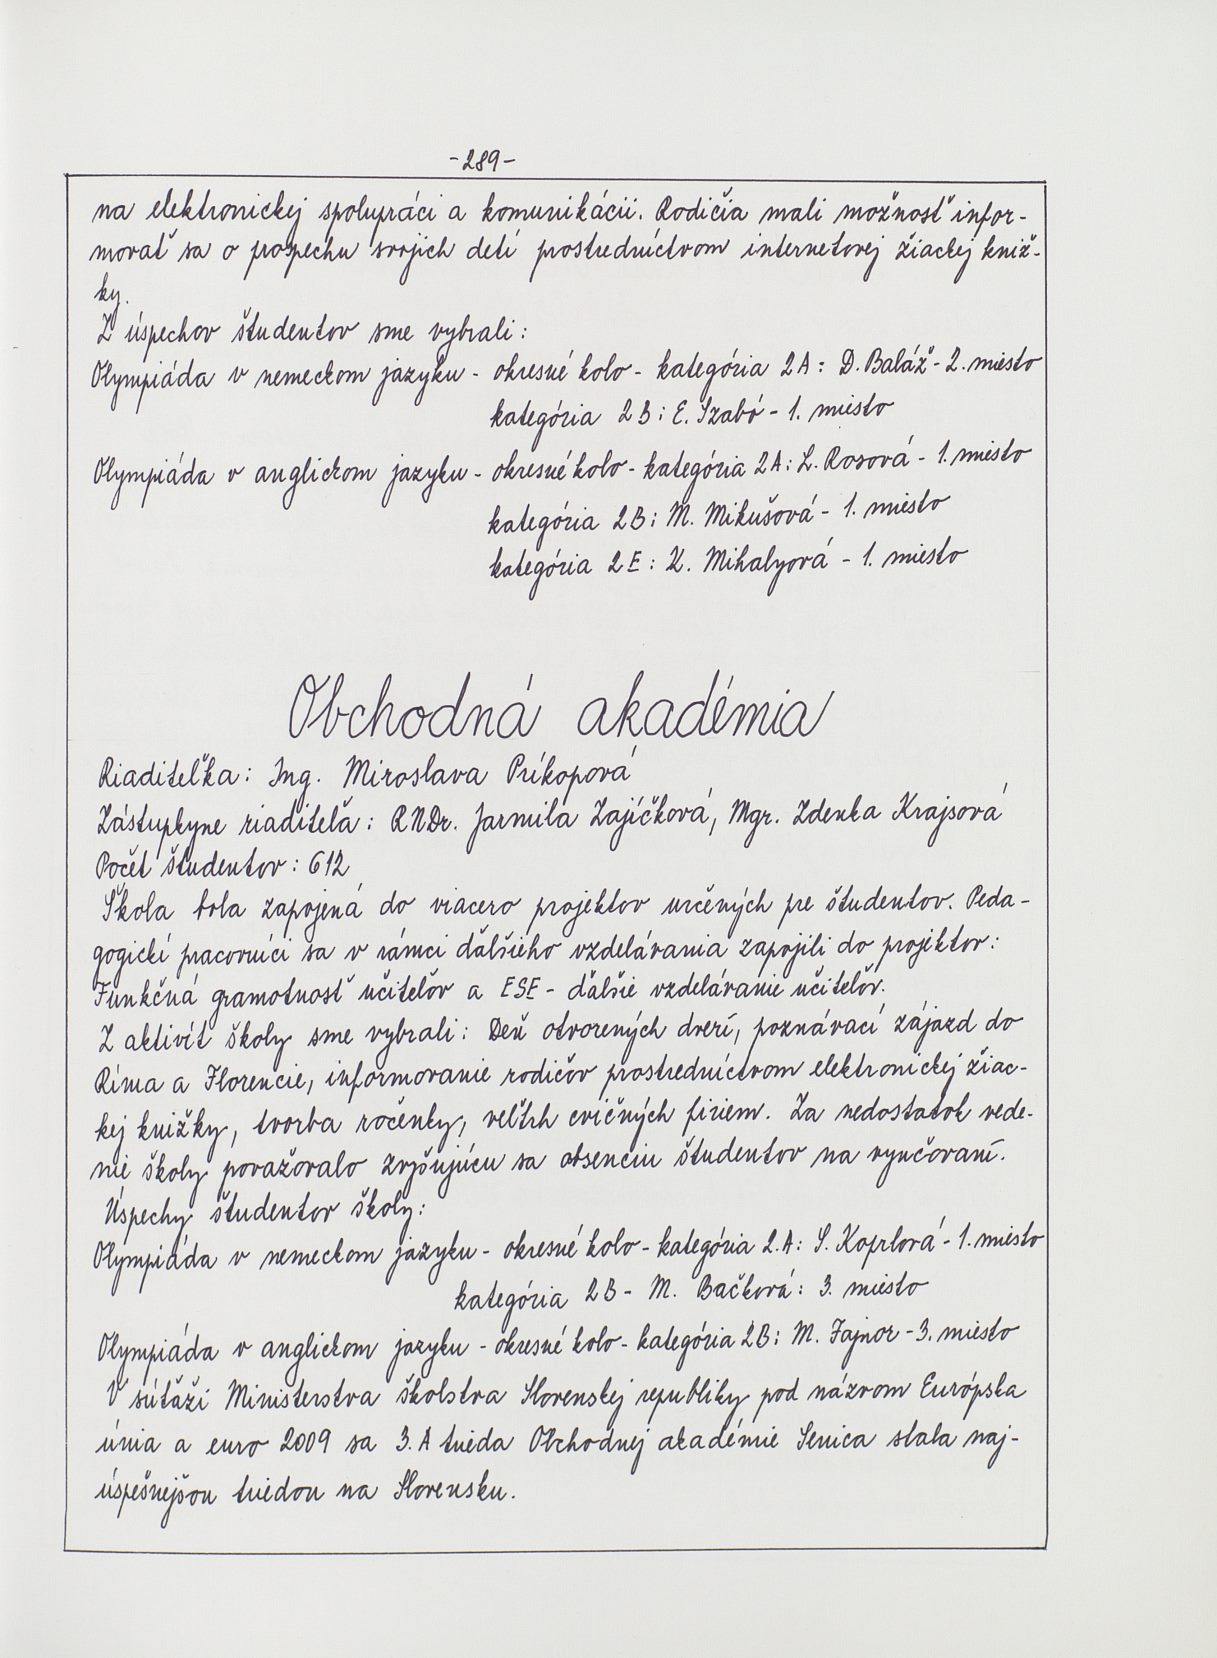 -289-
na elektronickej spolupráci a komunikácii. Rodičia mali možnosť infor-
movať sa o prospechu svojich detí prostredníctvom internetovej žiackej kniž-
ky.
Z úspechov študentov sme vybrali:
Olympiáda v nemeckom jazyku - okresné kolo - kategória 2A: D. Baláž - 2. miesto
kategória 2B: E. Szabó - 1. miesto
Olympiáda v anglickom jazyku - okresné kolo - kategória 2A: L. Rosová - 1. miesto
kategória 2B: M. Mikušová - 1. miesto
kategória 2E: K. Mihalyová - 1. miesto
Obchodná akadémia
Riaditeľka: Ing. Miroslava Príkopová
Zástupkyne riaditeľa: RNDr. Jarmila Zajíčková, Mgr. Zdenka Krajsová
Počet študentov: 612
Škola bola zapojená do viacero projektov určených pre študentov. Peda-
gogickí pracovníci sa v rámci ďalšieho vzdelávania zapojili do projektov:
Funkčná gramotnosť učiteľov a ESE - ďalšie vzdelávanie učiteľov.
Z aktivít školy sme vybrali: Deň otvorených dverí, poznávací zájazd do
Ríma a Florencie, informovanie rodičov prostredníctvom elektronickej žiac-
kej knižky, tvorba ročenky, veľtrh cvičných firiem. Za nedostatok vede-
nie školy považovalo zvyšujúcu sa absenciu študentov na vyučovaní.
Úspechy študentov školy:
Olympiáda v nemeckom jazyku - okresné kolo - kategória 2.A: S. Koprlová - 1. miesto
kategória 2B - M. Bačková: 3. miesto
Olympiáda v anglickom jazyku - okresné kolo - kategória 2B: M. Fajnor - 3. miesto
V súťaži Ministerstva školstva Slovenskej republiky pod názvom Európska
únia a euro 2009 sa 3.A trieda Obchodnej akadémie Senica stala naj-
úspešnejšou triedou na Slovensku.